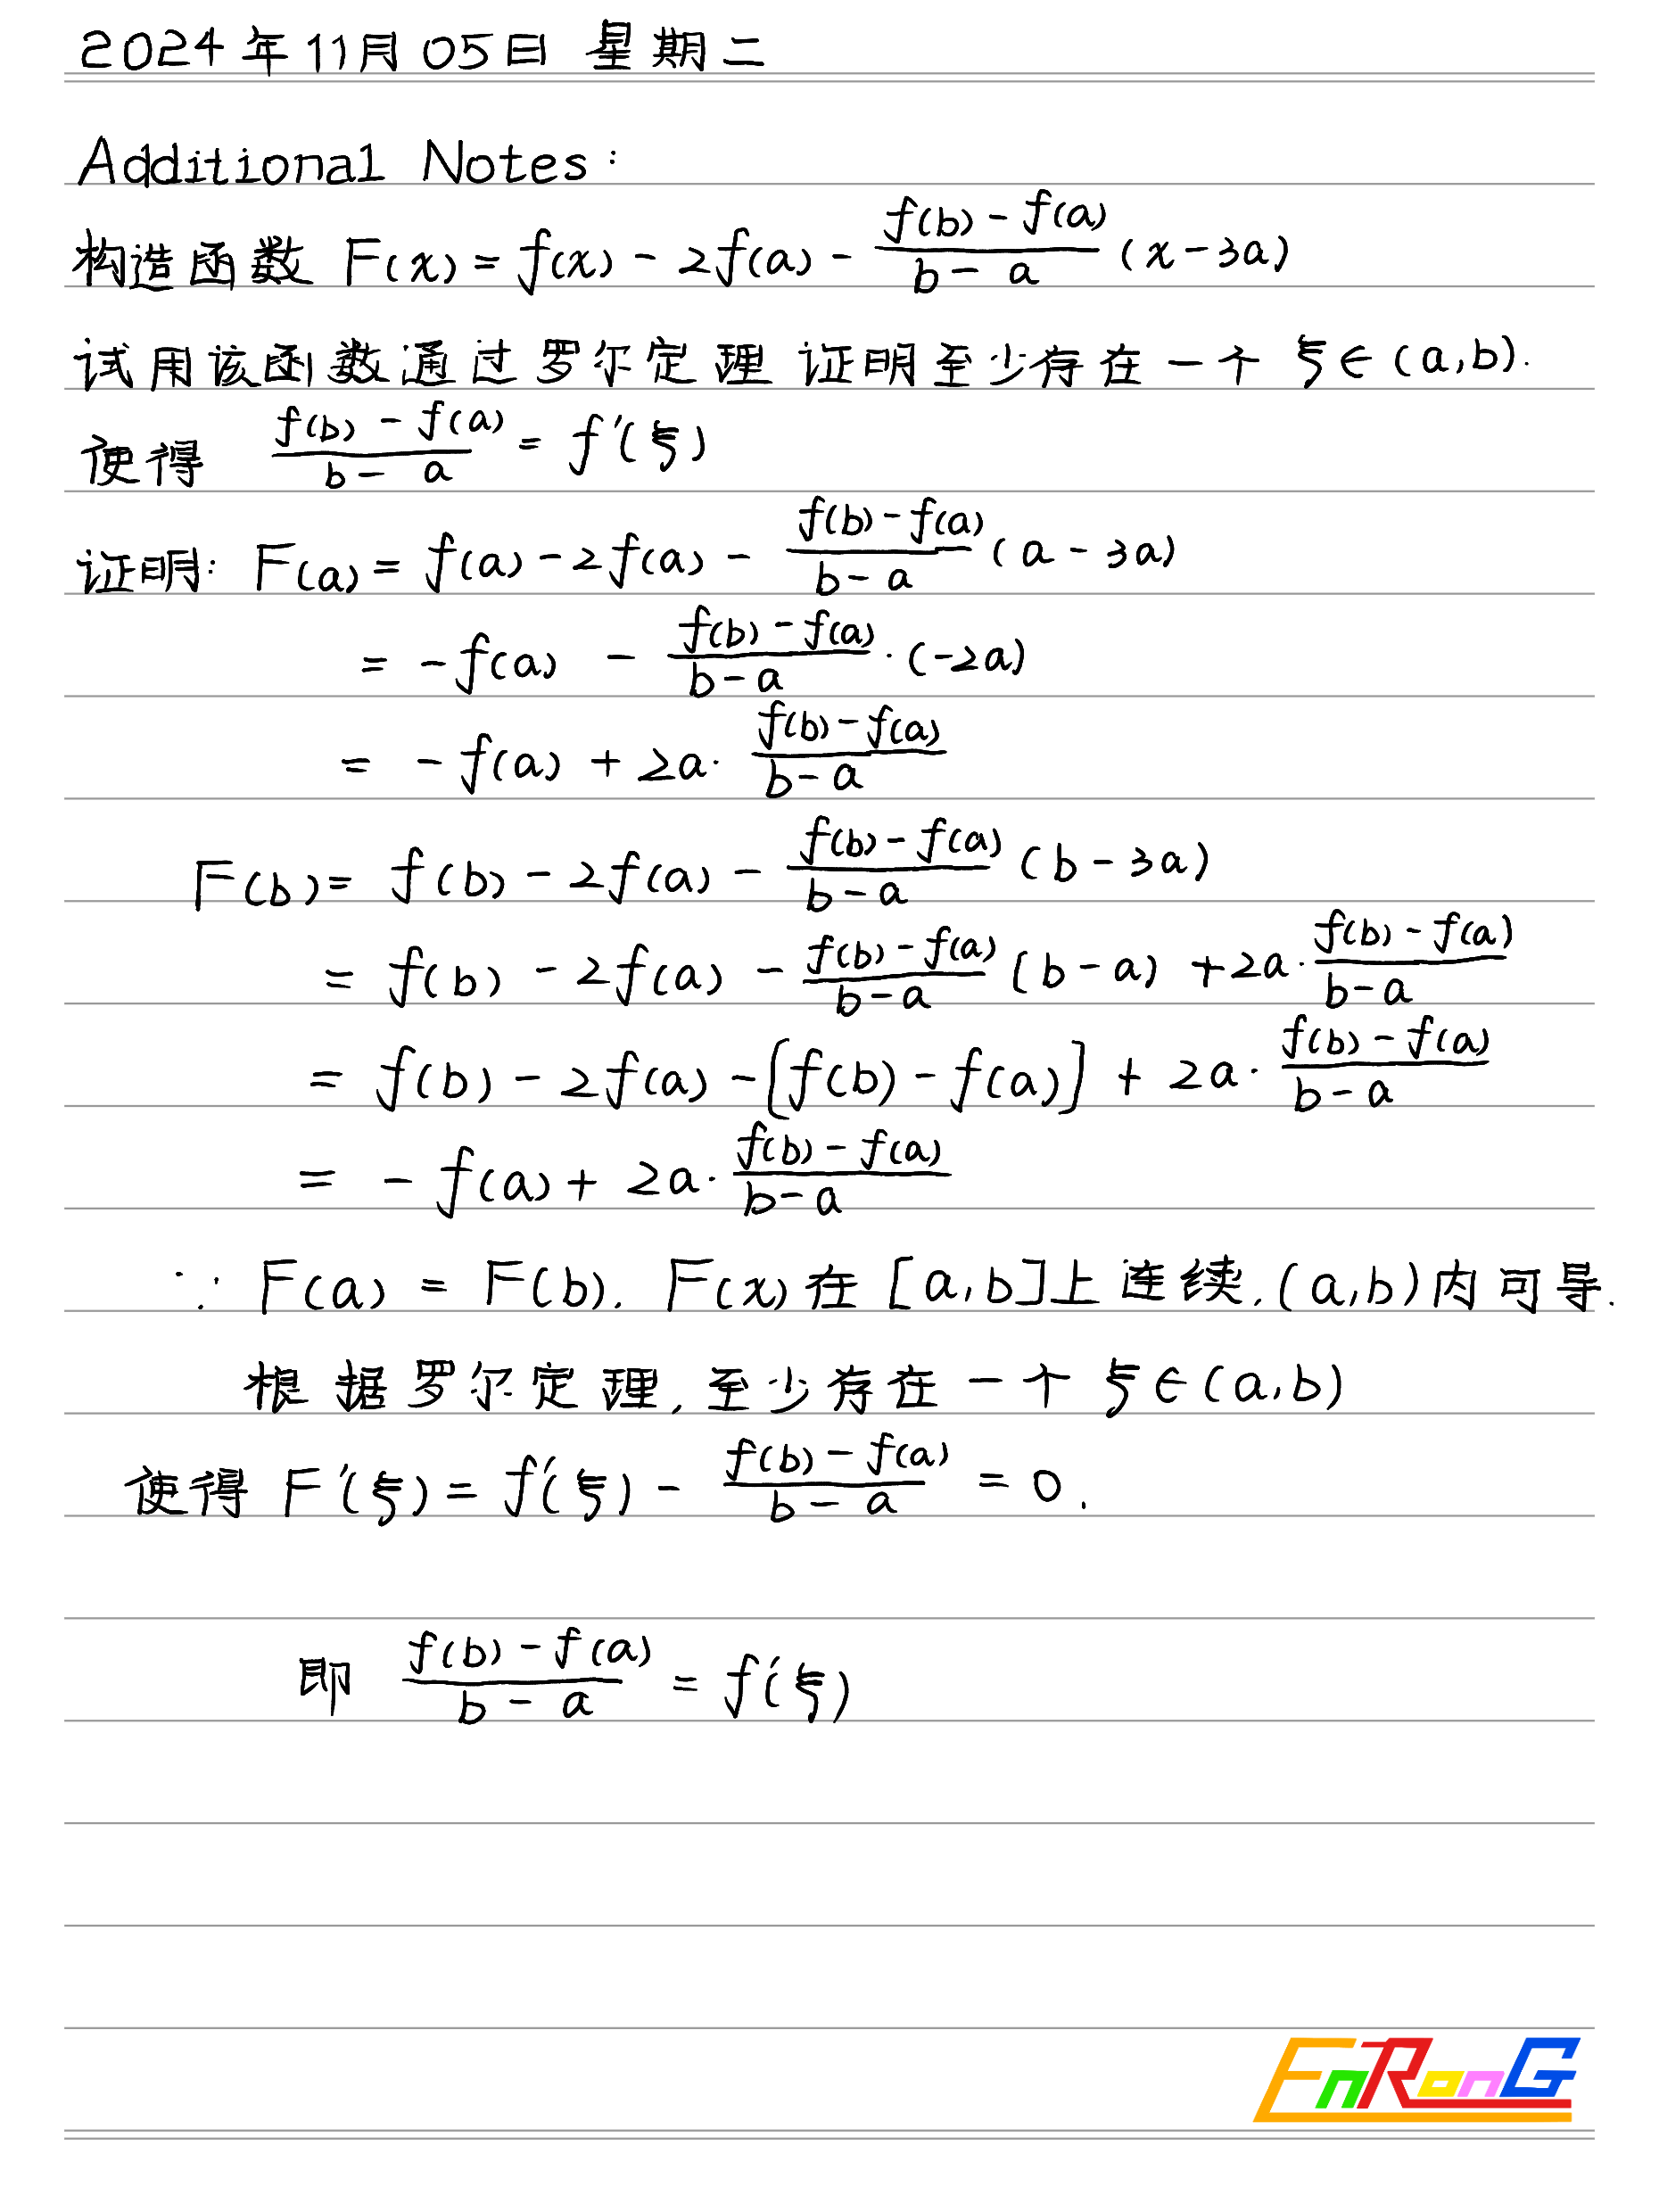 2024年11月05日 星期二
Additional Notes:
构造函数 F(x) = f(x) - 2f(a) - \frac{f(b) - f(a)}{b - a} (x - 3a)
试用该函数通过罗尔定理 证明至少存在一个 ξ∈(a,b).
使得 \frac{f(b) - f(a)}{b - a} = f'(ξ)
证明: F(a) = f(a) - 2f(a) - \frac{f(b) - f(a)}{b - a} (a - 3a)
= -f(a) - \frac{f(b) - f(a)}{b - a} · (-2a)
= -f(a) + 2a · \frac{f(b) - f(a)}{b - a}
F(b) = f(b) - 2f(a) - \frac{f(b) - f(a)}{b - a} (b - 3a)
= f(b) - 2f(a) - \frac{f(b) - f(a)}{b - a} (b - a) + 2a · \frac{f(b) - f(a)}{b - a}
= f(b) - 2f(a) - [f(b) - f(a)] + 2a · \frac{f(b) - f(a)}{b - a}
= -f(a) + 2a · \frac{f(b) - f(a)}{b - a}
∵ F(a) = F(b). F(x)在[a,b]上连续.(a,b)内可导.
根据罗尔定理,至少存在一个 ξ∈(a,b)
使得 F'(ξ) = f'(ξ) - \frac{f(b) - f(a)}{b - a} = 0.
即 \frac{f(b) - f(a)}{b - a} = f'(ξ)
EnRonG